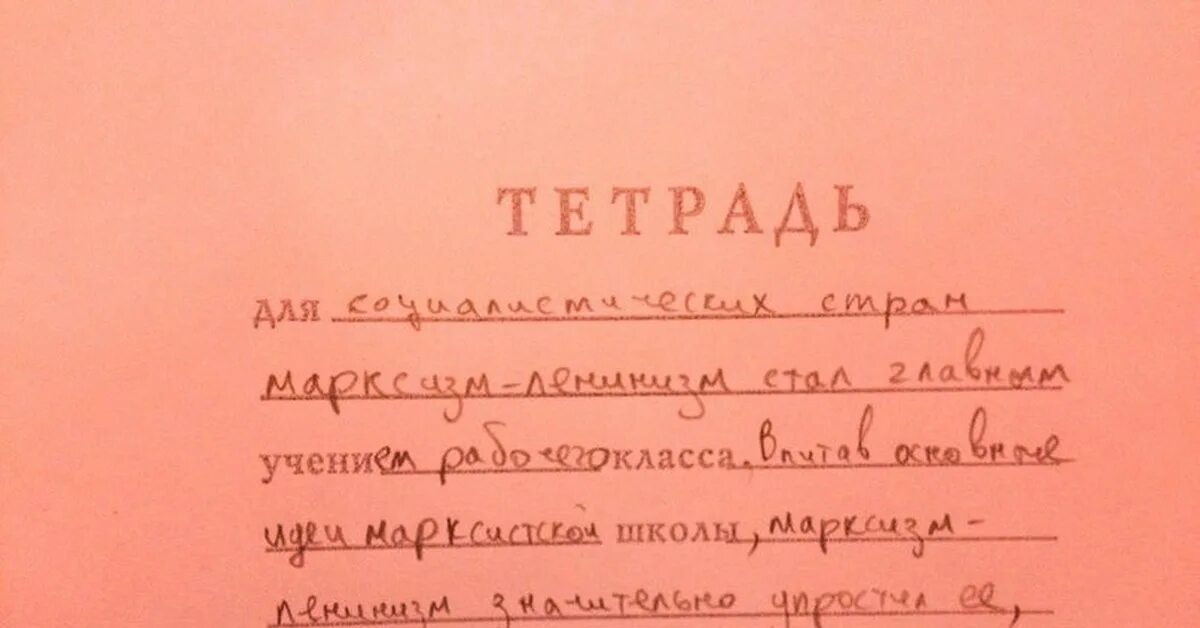 ТЕТРАДЬ
для социалистических стран
марксизм-ленинизм стал главным
учением рабочего класса. Впитав основные
идеи марксистской школы, марксизм-
ленинизм значительно упростил ее,